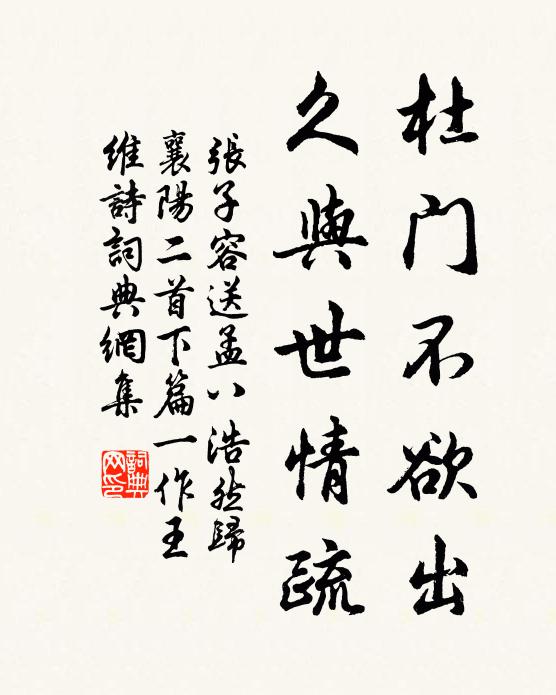 杜門不欲出
久與世情疏
張子容送孟八浩然歸
襄陽二首下篇一作王
維詩詞典網集
詞典
网印